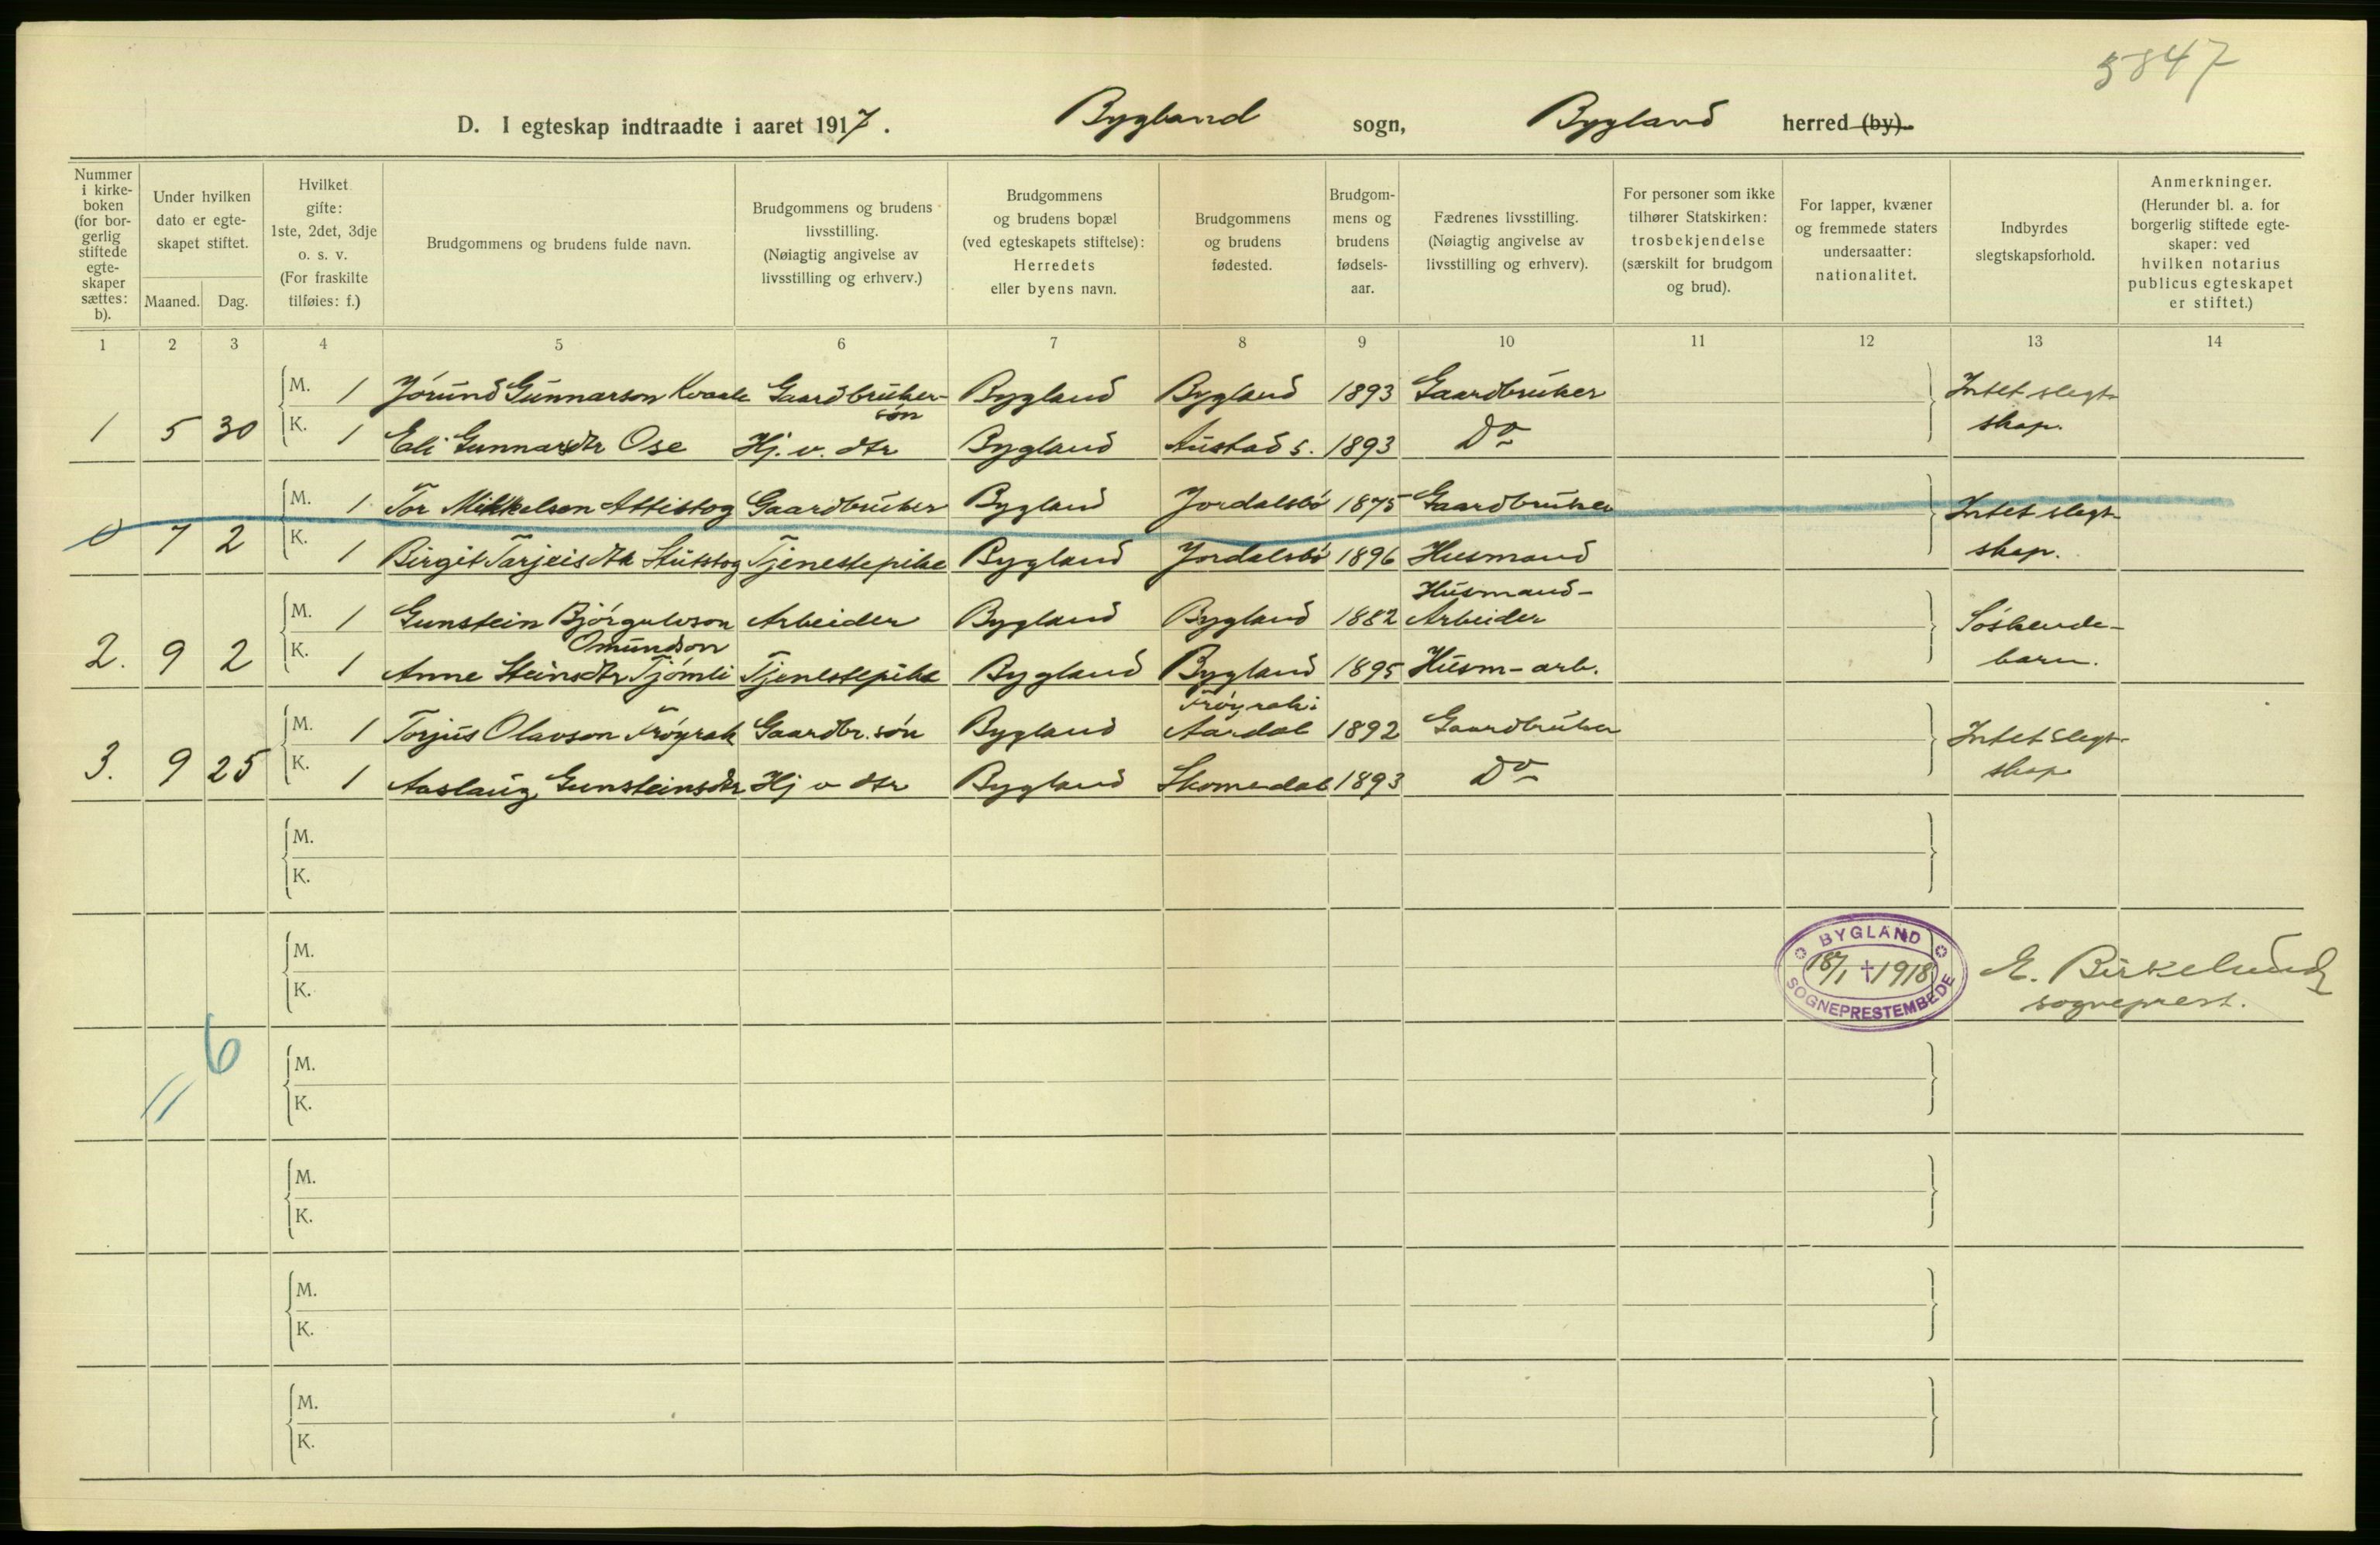 5847
D. I egteskap indtraadte i aaret 1917. Bygland sogn, Bygland herred (by).
Nummer i kirkeboken (for borgerlig stiftede egteskaper sættes: b).
Under hvilken dato er egteskapet stiftet.
Maaned. Dag.
Hvilket gifte: 1ste, 2det, 3dje o. s. v. (For fraskilte tilføies: f.)
Brudgommens og brudens fulde navn.
Brudgommens og brudens livsstilling. (Nøiagtig angivelse av livsstilling og erhverv.)
Brudgommens og brudens bopæl (ved egteskapets stiftelse): Herredets eller byens navn.
Brudgommens og brudens fødested.
Brudgommens og brudens fødselsaar.
Fædrenes livsstilling. (Nøiagtig angivelse av livsstilling og erhverv).
For personer som ikke tilhører Statskirken: trosbekjendelse (særskilt for brudgom og brud).
For lapper, kvæner og fremmede staters undersaatter: nationalitet.
Indbyrdes slegtskapsforhold.
Anmerkninger. (Herunder bl. a. for borgerlig stiftede egteskaper: ved hvilken notarius publicus egteskapet er stiftet.)
1 2 3 4 5 6 7 8 9 10 11 12 13 14
M. 1 Jórund Gunnarson Kvaale Gaardbrukersón Bygland Bygland 1893 Gaardbruker Intet slegt-
1 5 30 K. 1 Eli Gunnarsdtr Ose Hj. v. dtr Bygland Austad s. 1893 Do skap.
M. 1 Tor Mikkelsen Attistog Gaardbruker Bygland Jordalsbó 1875 Gaardbruker Intet slegt-
0 7 2 K. 1 Birgit Tarjeisdtr Stutstog Tjenestepike Bygland Jordalsbó 1896 Husmand skap.
Husmand-
M. 1 Gunstein Bjórgulvson Arbeider Bygland Bygland 1882 Arbeider Sóskende-
Omundson
2. 9 2 K. 1 Anne Steinsdtr Tjómli Tjenestepike Bygland Bygland 1895 Husm-arb. barn.
Fróyrak i
M. 1 Torjus Olavson Fróyrak Gaardbr. són Bygland Aardal 1892 Gaardbruker Intet slegt-
3. 9 25 K. 1 Aaslaug Gunsteinsdtr Hj v dtr Bygland Skomedal 1893 Do skap
M.
K.
M.
K.
BYGLAND
18/1 1918
SOGNEPRESTEMBEDE
E. Birkelund
sogneprest.
6
M.
K.
M.
K.
M.
K.
M.
K.